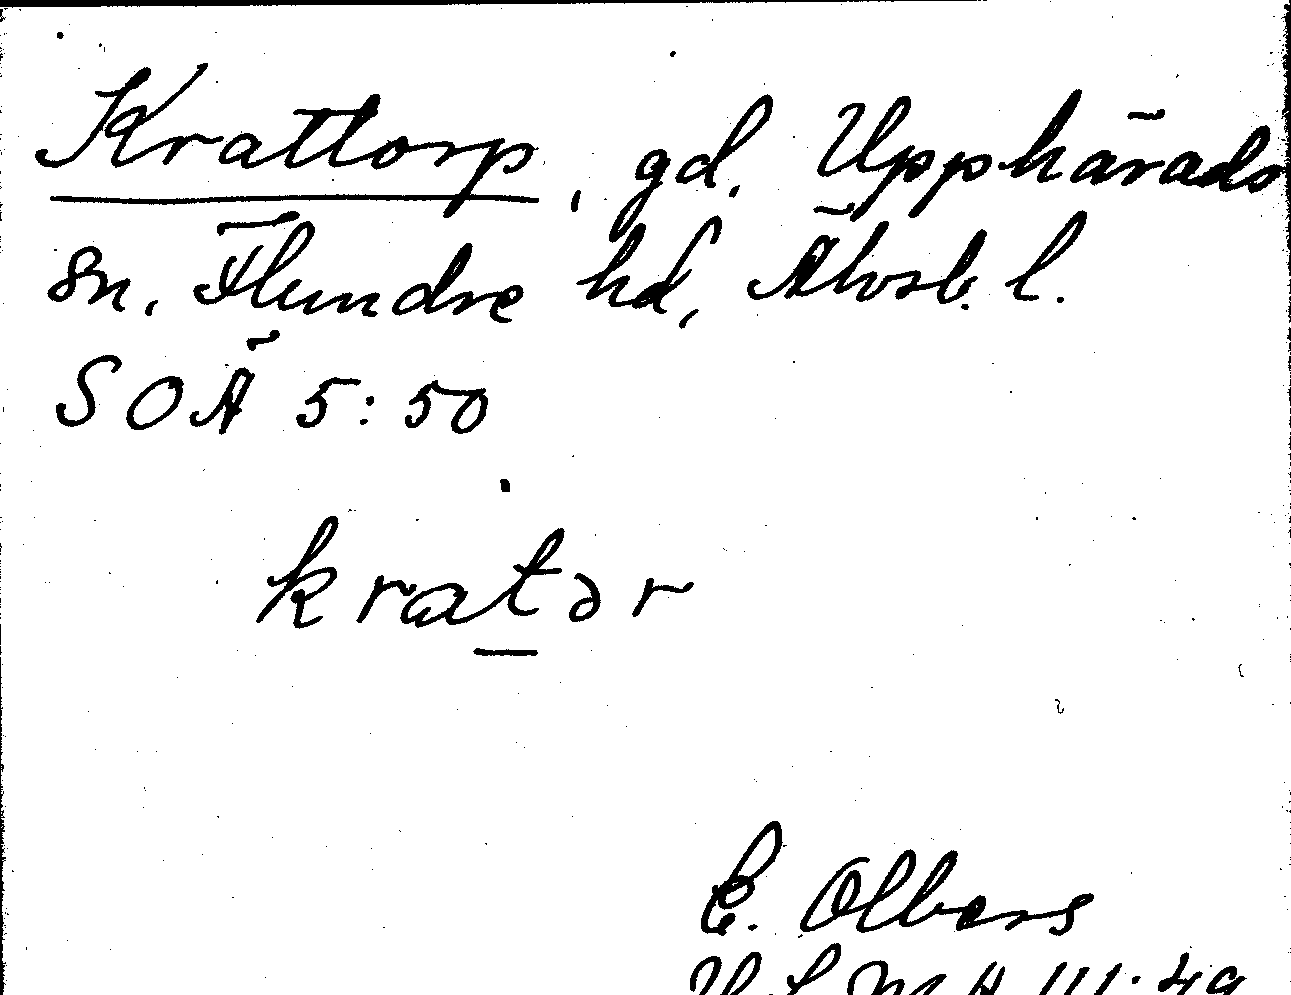 Krattorp, gd. Upphärads
sn. Flundre hd, Älvsb. l.
SOÄ 5:50
kratər
E. Olbers